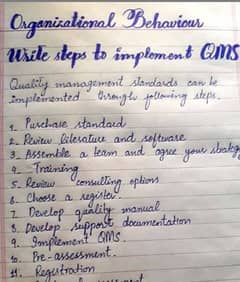 Organizational Behaviour
Write steps to implement QMS
Quality management standards can be
implemented through following steps.
1. Purchase standard
2. Review literature and software
3. Assemble a team and agree your strategy
4. Training
5. Review consulting options
6. Choose a register.
7. Develop quality manual
8. Develop support documentation
9. Implement QMS.
10. Pre-assessment.
11. Registration